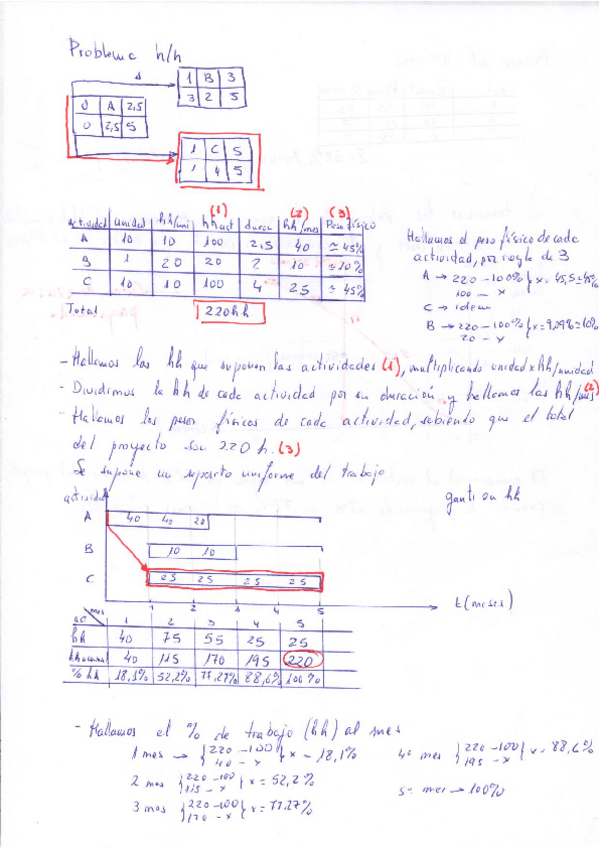 Problema h/h
1 B 3
3 2 5
0 A 2,5
0 2,5 5
1 C 5
1 4 5
(1) (2) (3)
actividad unidad hh/uni hh act durac hh/mes Peso físico
A 10 10 100 2,5 40 ≃45%
B 1 20 20 2 10 ≃10%
C 10 10 100 4 25 ≃45%
Total 220hh
Hallamos el peso físico de cada
actividad, por regla de 3
A → 220 - 100% } x = 45,5 ≃ 45%
100 - x
C → idem
B → 220 - 100% } x = 9,09% ≃ 10%
20 - x
- Hallamos las hh que suponen las actividades (1), multiplicando unidad x hh/unidad
- Dividimos la hh de cada actividad por su duración y hallamos las hh/mes (2)
- Hallamos los pesos físicos de cada actividad, sabiendo que el total
del proyecto son 220 h. (3)
Se supone un reparto uniforme del trabajo
actividad
gantt en hh
A 40 40 20
B 10 10
C 25 25 25 25
1 2 3 4 5 t (meses)
ac mes 1 2 3 4 5
hh 40 75 55 25 25
hh acumul 40 115 170 195 220
% hh 18,1% 52,2% 77,27% 88,6% 100%
- Hallamos el % de trabajo (hh) al mes
1 mes → { 220 - 100 } x = 18,1%
40 - x
2 mes { 220 - 100 } x = 52,2%
115 - x
3 mes { 220 - 100 } x = 77.27%
170 - x
4º mes { 220 - 100 } x = 88,6%
195 - x
5º mes → 100%